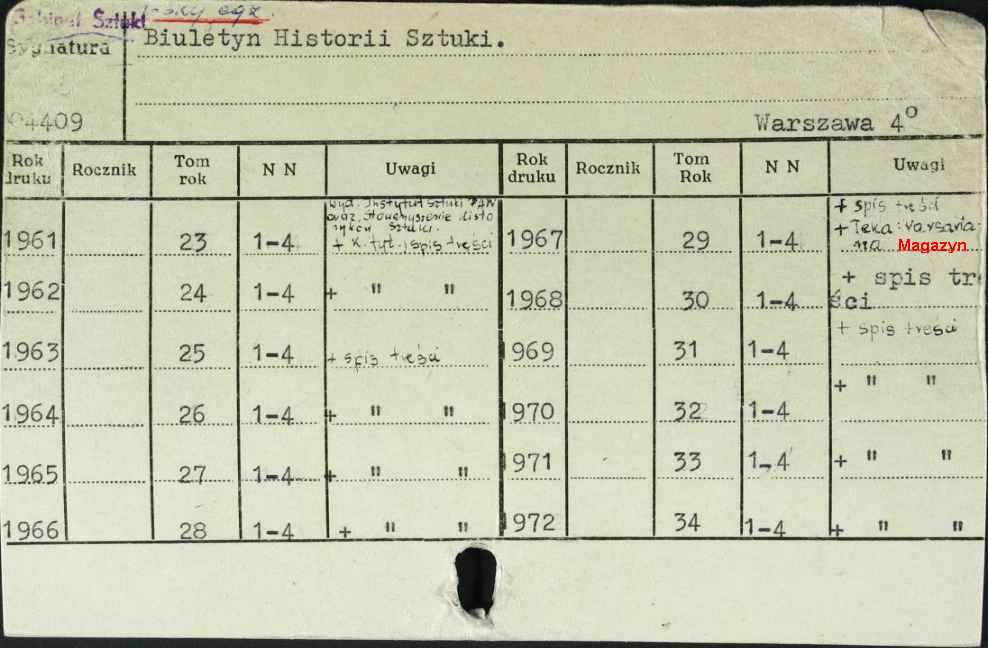 Gabinet Sztuki I-szy egz.
Sygnatura
Biuletyn Historii Sztuki.
04409
Warszawa 4°
Rok druku Rocznik Tom rok N N Uwagi Rok druku Rocznik Tom Rok N N Uwagi
1961 23 1-4 wyd. Instytut Sztuki PAN
oraz Stowarzyszenie Histo
ryków Sztuki.
+ k. tyt. i spis treści
1962 24 1-4 + " "
1963 25 1-4 + spis treści
1964 26 1-4 + " "
1965 27 1-4 + " "
1966 28 1-4 + " "
1967 29 1-4 + spis treści
+ Teka: Varsavia
na Magazyn
1968 30 1-4 + spis tre
ści
1969 31 1-4 + spis treści
1970 32 1-4 + " "
1971 33 1-4 + " "
1972 34 1-4 + " "